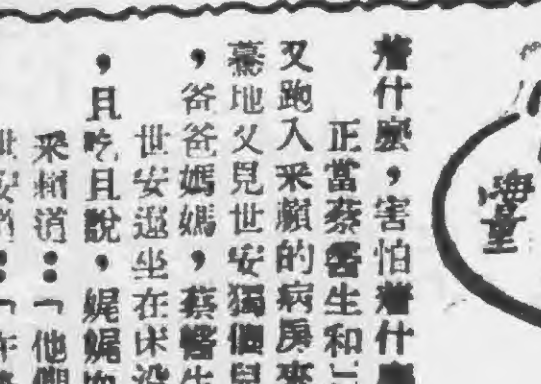 海量
着什麼，害怕着什麼
正當蔡醫生和
又跑入采蘋的病房來
驀地又見世安獨個兒
，爸爸媽媽，蔡醫生
世安遲坐在床沿
，且吃且說，娓娓
采蘋道：「他們
世安道：「